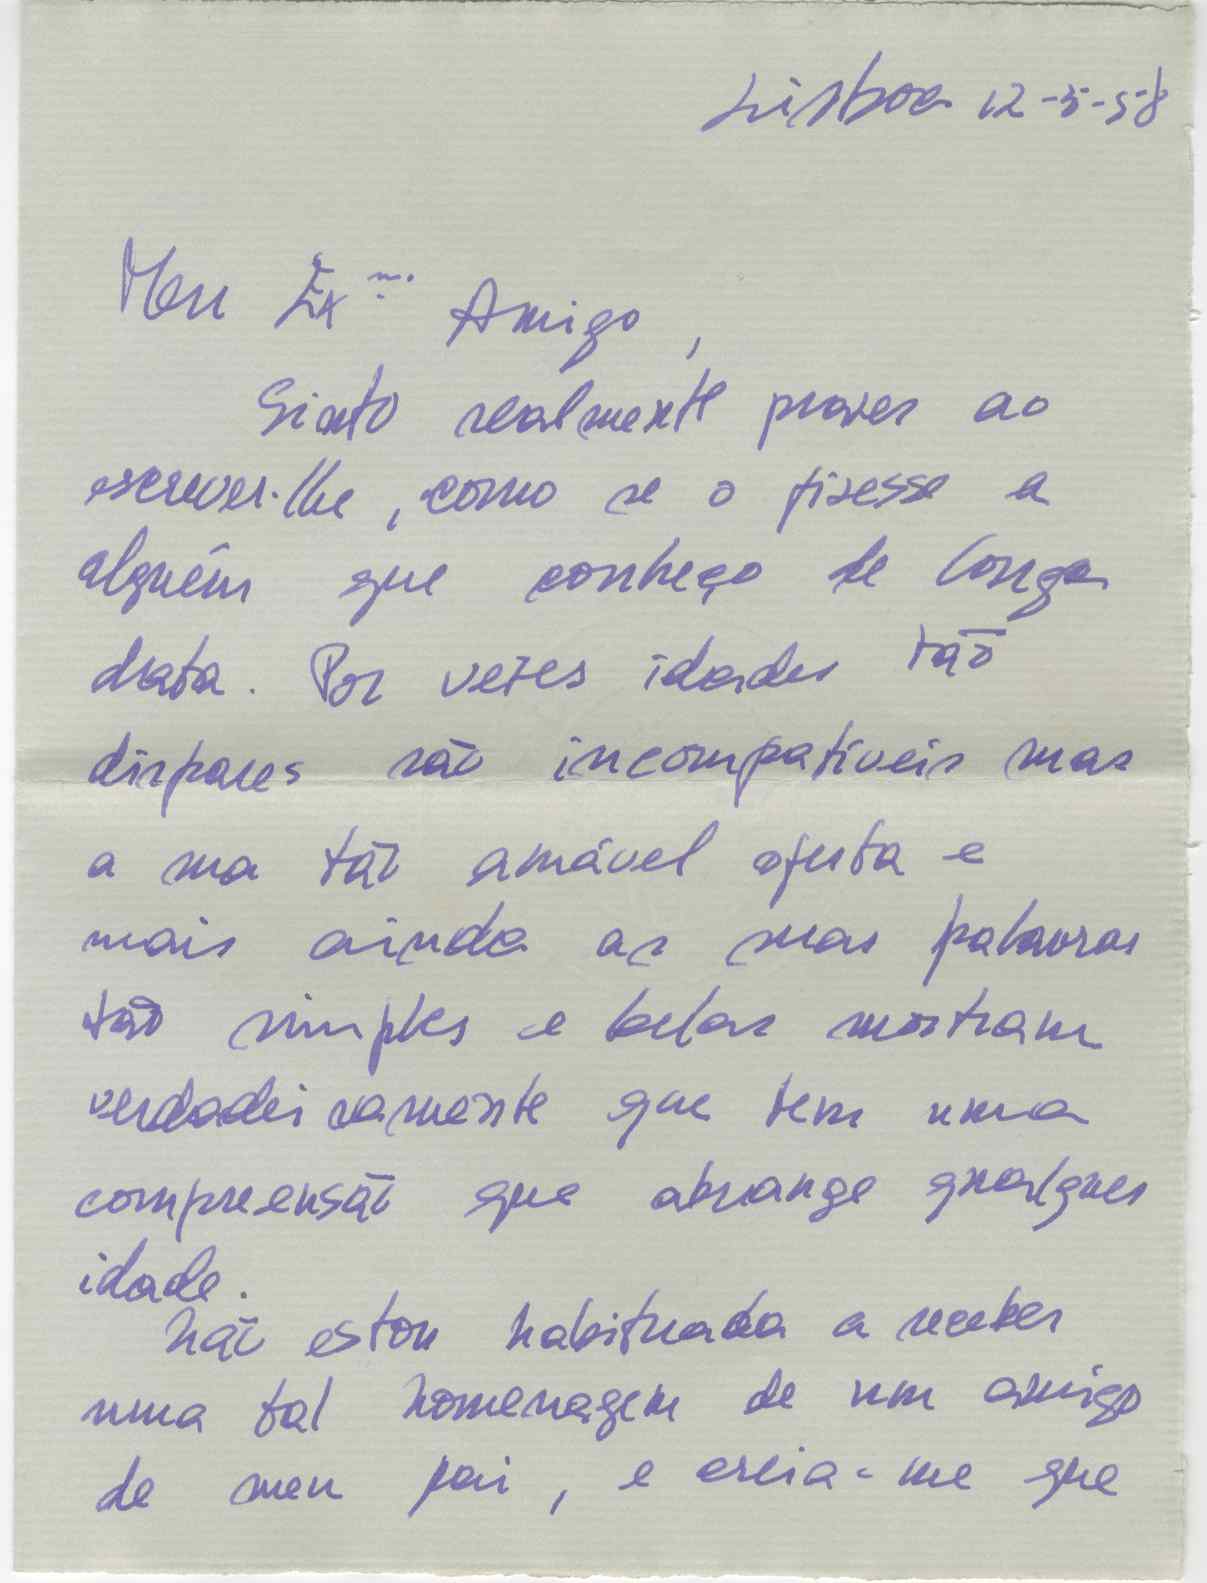 Lisboa 12-5-58
Meu Ex.mo Amigo,
Sinto realmente prazer ao
escrever-lhe, como se o fizesse a
alguém que conheço de longa
data. Por vezes idades tão
dispares são incompatíveis mas
a sua tão amável oferta e
mais ainda as suas palavras
tão simples e belas mostram
verdadeiramente que tem uma
compreensão que abrange qualquer
idade.
Não estou habituada a receber
uma tal homenagem de um amigo
de meu pai, e creia-me que